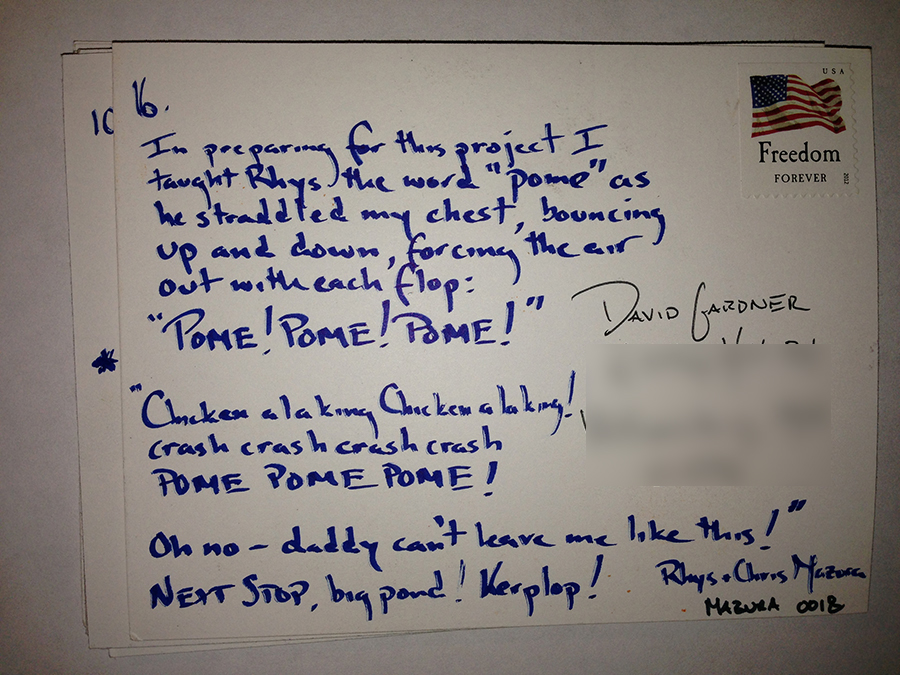 10
16.
USA
Freedom
FOREVER
2012
In preparing for this project I
taught Rhys the word "pome" as
he straddled my chest, bouncing
up and down, forcing the air
out with each flop:
"POME! POME! POME!"
DAVID GARDNER
*
"Chicken a la king Chicken a la king!
crash crash crash crash
POME POME POME!
Oh no – daddy can't leave me like this!"
NEXT STOP, big pond! Kerplop!
Rhys + Chris Mazura
MAZURA 0018